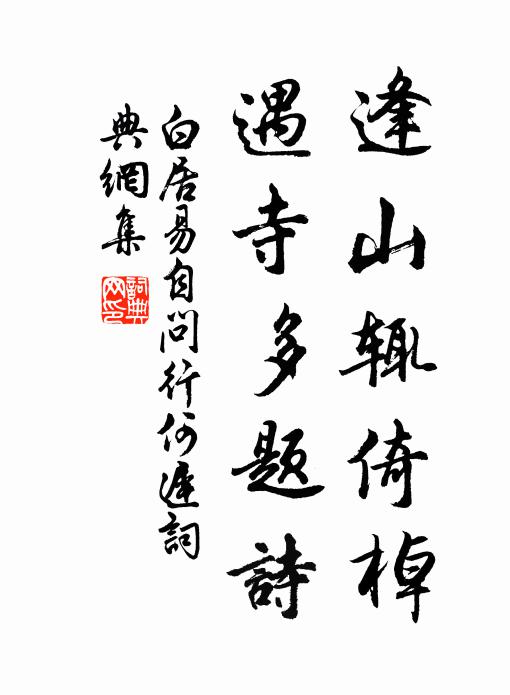 逢山辄倚棹
遇寺多題詩
白居易自問行何遲詞
典網集
詞典
网印